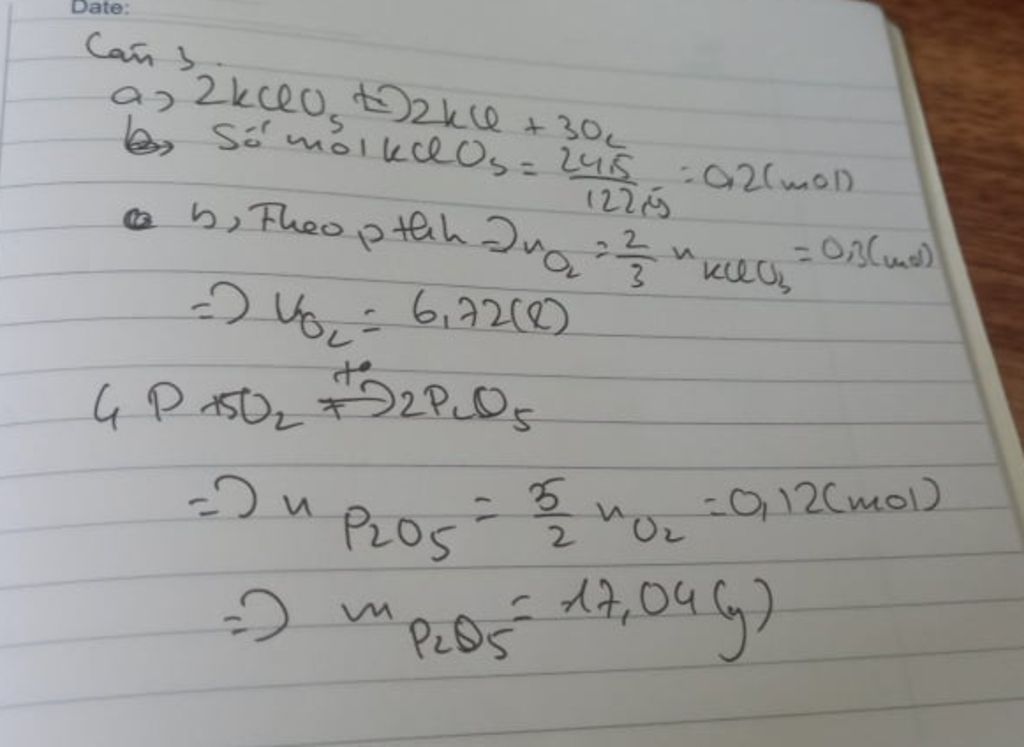 Date:
Câu 3.
a, 2KClO3 t°→ 2KCl + 3O2
b, Số mol KClO3 = 24,5/122,5 = 0,2(mol)
b, Theo ptHh => nO2 = 2/3 nKClO3 = 0,3(mol)
=> VO2 = 6,72(l)
4P + 5O2 t°→ 2P2O5
=> nP2O5 = 5/2 nO2 = 0,12(mol)
=> mP2O5 = 17,04(g)